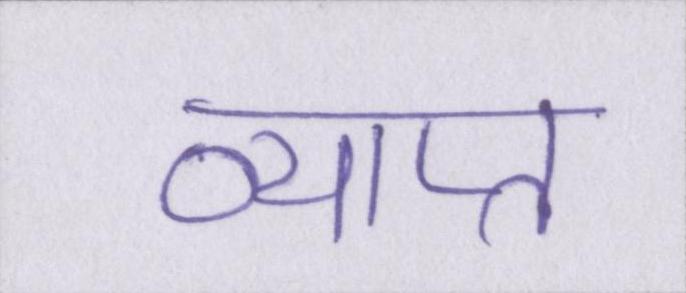 व्याप्त